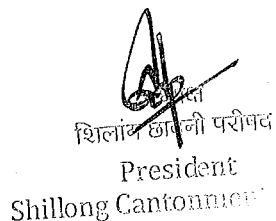 शिलांग छावनी परिषद
President
Shillong Cantonment